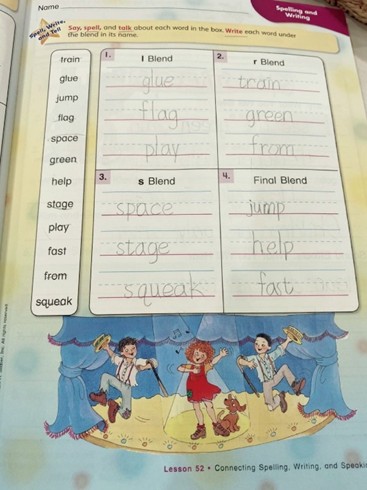 Name
Spelling and
Writing
Spell, Write,
and Tell
Say, spell, and talk about each word in the box. Write each word under
the blend in its name.
train
glue
jump
flag
space
green
help
stage
play
fast
from
squeak
1. l Blend
glue
flag
play
2. r Blend
train
green
from
3. s Blend
space
stage
squeak
4. Final Blend
jump
help
fast
Lesson 52 • Connecting Spelling, Writing, and Speaki